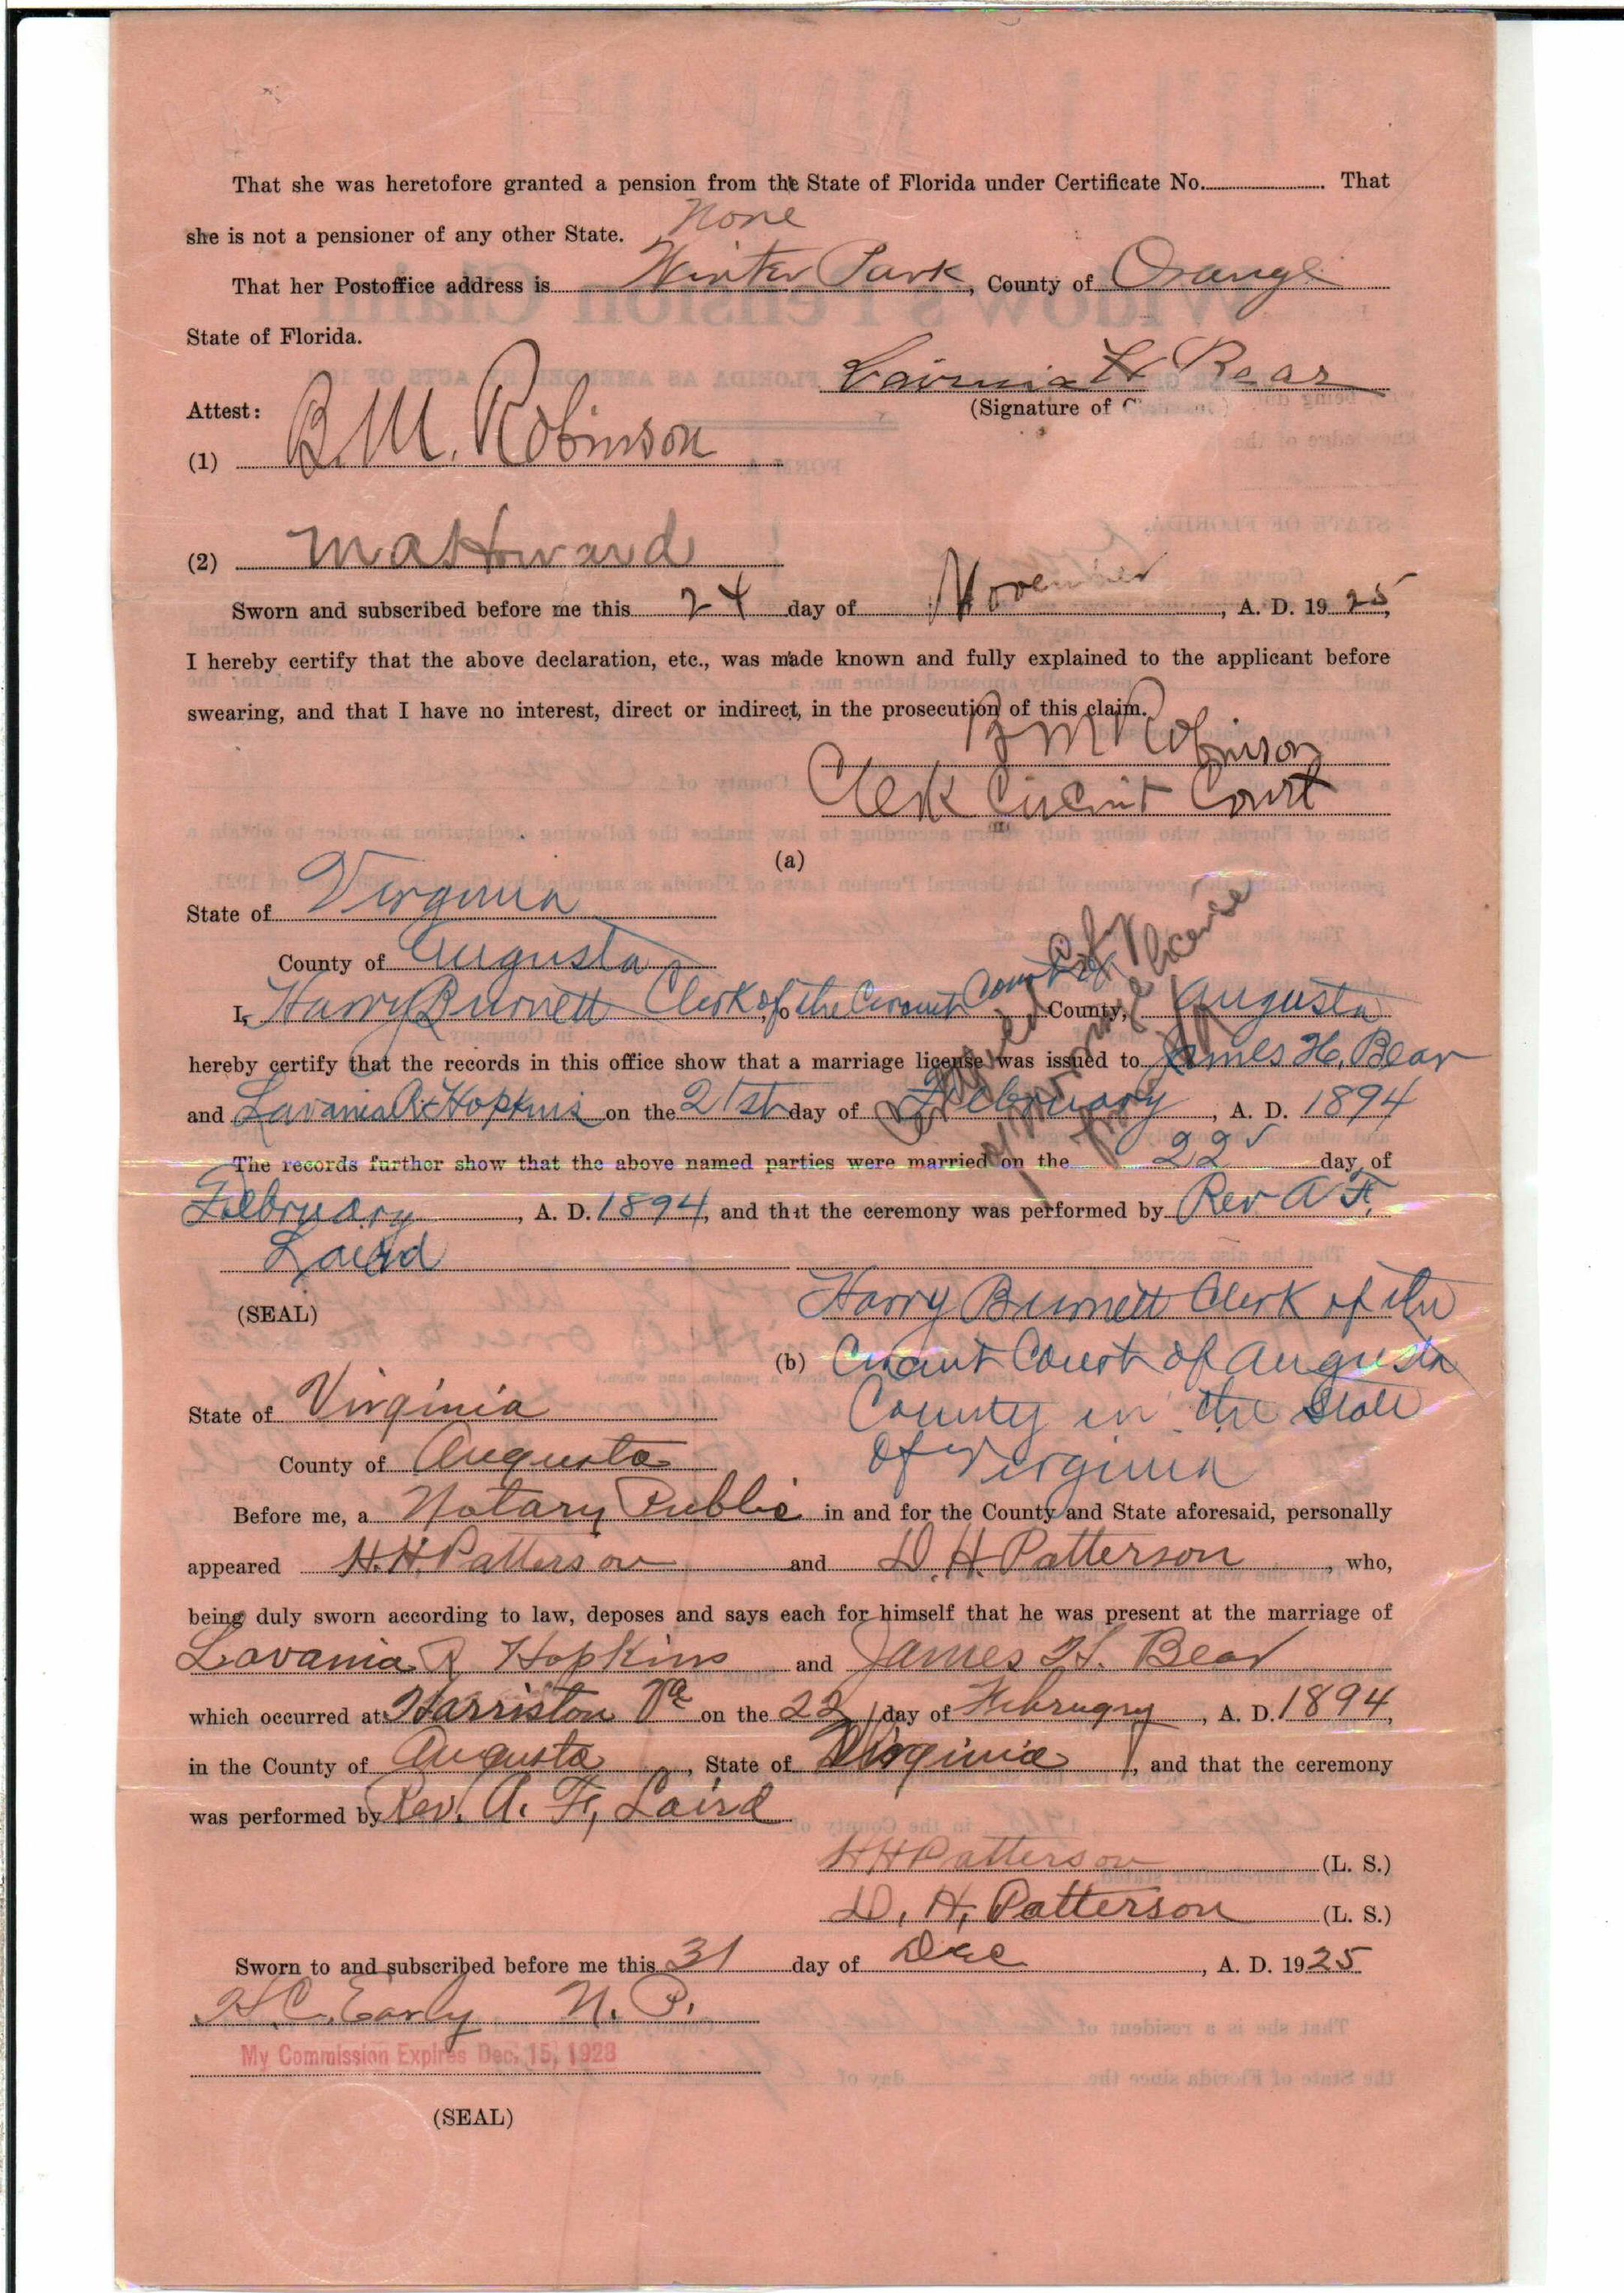 That she was heretofore granted a pension from the State of Florida under Certificate No. That
she is not a pensioner of any other State. None
That her Postoffice address is Winter Park, County of Orange
State of Florida.
H Bear
Attest:
(Signature of
(1) B. M. Robinson
(2) M A Howard
Sworn and subscribed before me this 24 day of November, A. D. 1925,
I hereby certify that the above declaration, etc., was made known and fully explained to the applicant before
swearing, and that I have no interest, direct or indirect, in the prosecution of this claim.
B M Robinson
Clerk Circuit Court
(a)
State of Virginia
County of Augusta
I, Harry Burnett Clerk of the Circuit Court of County, Augusta
hereby certify that the records in this office show that a marriage license was issued to James H. Bear
and Lavania R Hopkins on the 21st day of February, A. D. 1894
The records further show that the above named parties were married on the 22 day of
February, A. D. 1894, and that the ceremony was performed by Rev A F.
Laird
(SEAL)
Harry Burnett Clerk of the
(b) Circuit Court of Augusta
County in the State
of Virginia
State of Virginia
County of Augusta
Before me, a Notary Public in and for the County and State aforesaid, personally
appeared H. H. Patterson and D. H. Patterson, who,
being duly sworn according to law, deposes and says each for himself that he was present at the marriage of
Lavania R Hopkins and James H. Bear
which occurred at Harriston Va on the 22 day of February, A. D. 1894,
in the County of Augusta, State of Virginia, and that the ceremony
was performed by Rev. A. F. Laird
H H Patterson (L. S.)
D. H. Patterson (L. S.)
Sworn to and subscribed before me this 31 day of Dec, A. D. 1925
H C. Early N. P.
My Commission Expires Dec. 15, 1928
(SEAL)